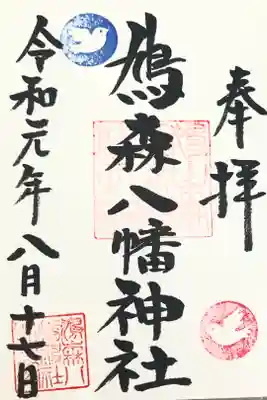 奉拝
鳩森八幡神社
令和元年八月十七日